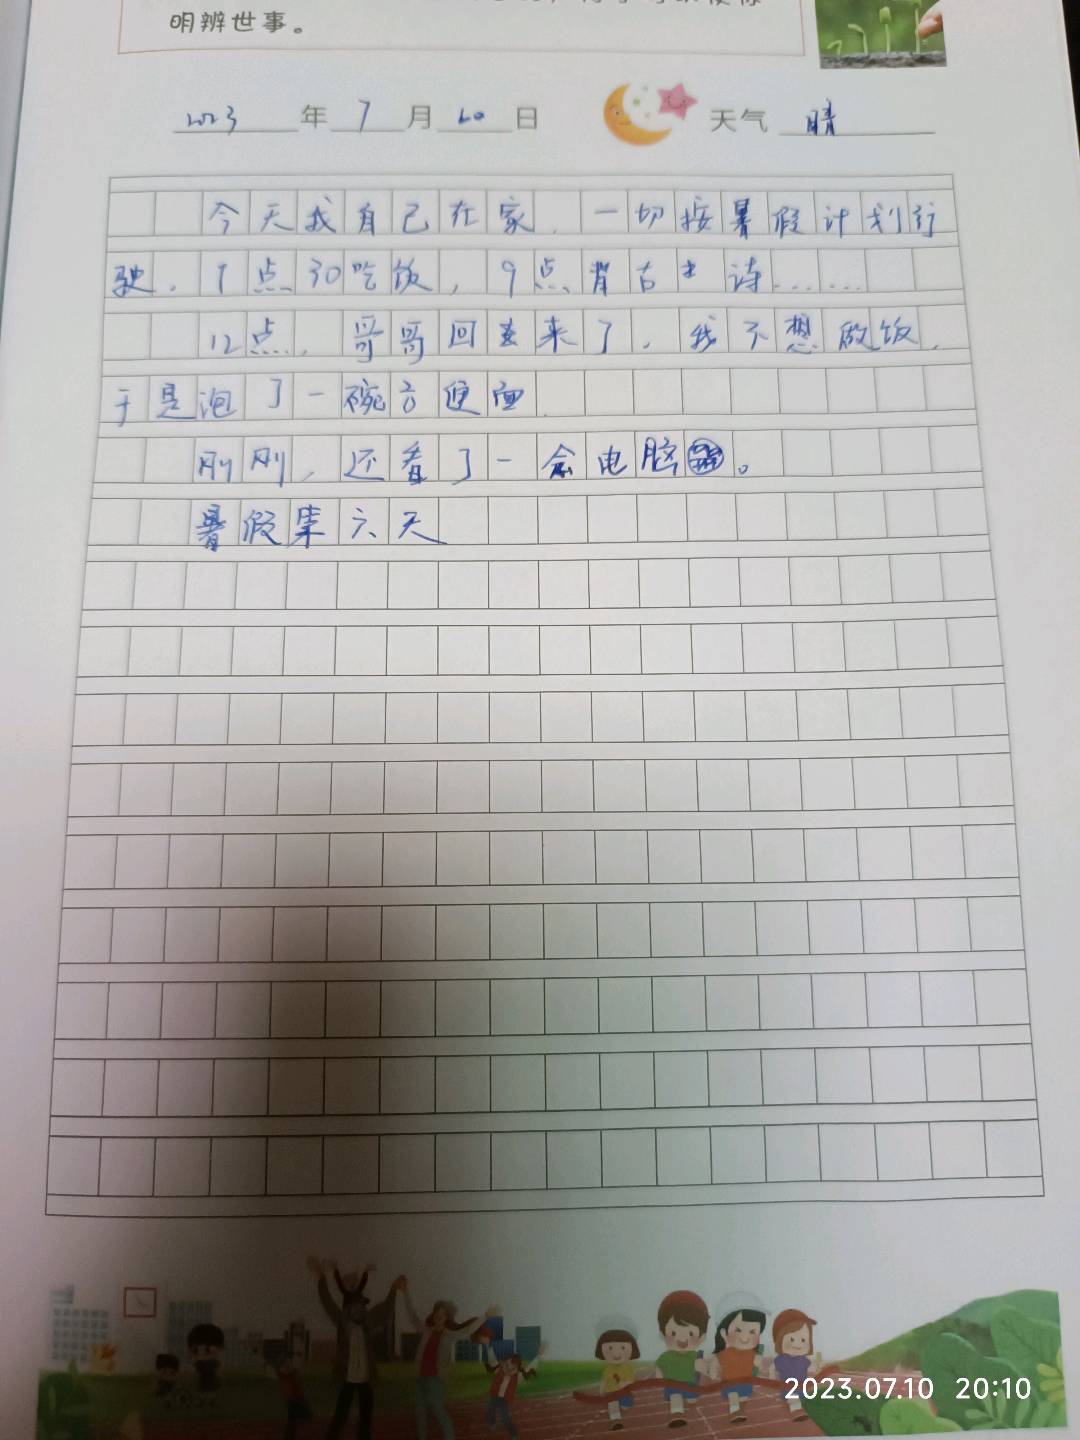 明辨世事。
2023年7月10日 天气 晴
今天我自己在家，一切按暑假计划行
驶，7点30吃饭，9点背古诗……
12点，哥哥回来了，我不想做饭，
于是泡了一碗方便面．
刚刚，还看了一会电脑。
暑假第六天
2023.07.10 20:10